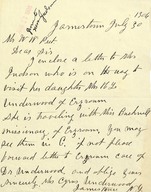 1906
Jamestown July 30
Mr W W Peet
Dear Sir
I enclose a letter to Mrs
Judson who is on the way to
visit her daughter Mrs H. L.
Underwood of Erzroom
She is traveling with Miss Bushnell
missionary of Erzroom. You may
see them in C. if not please
forward letter to Erzroom care of
Dr Underwood, and oblige yours
Sincerely Mrs Cyrus Underwood
Jamestown